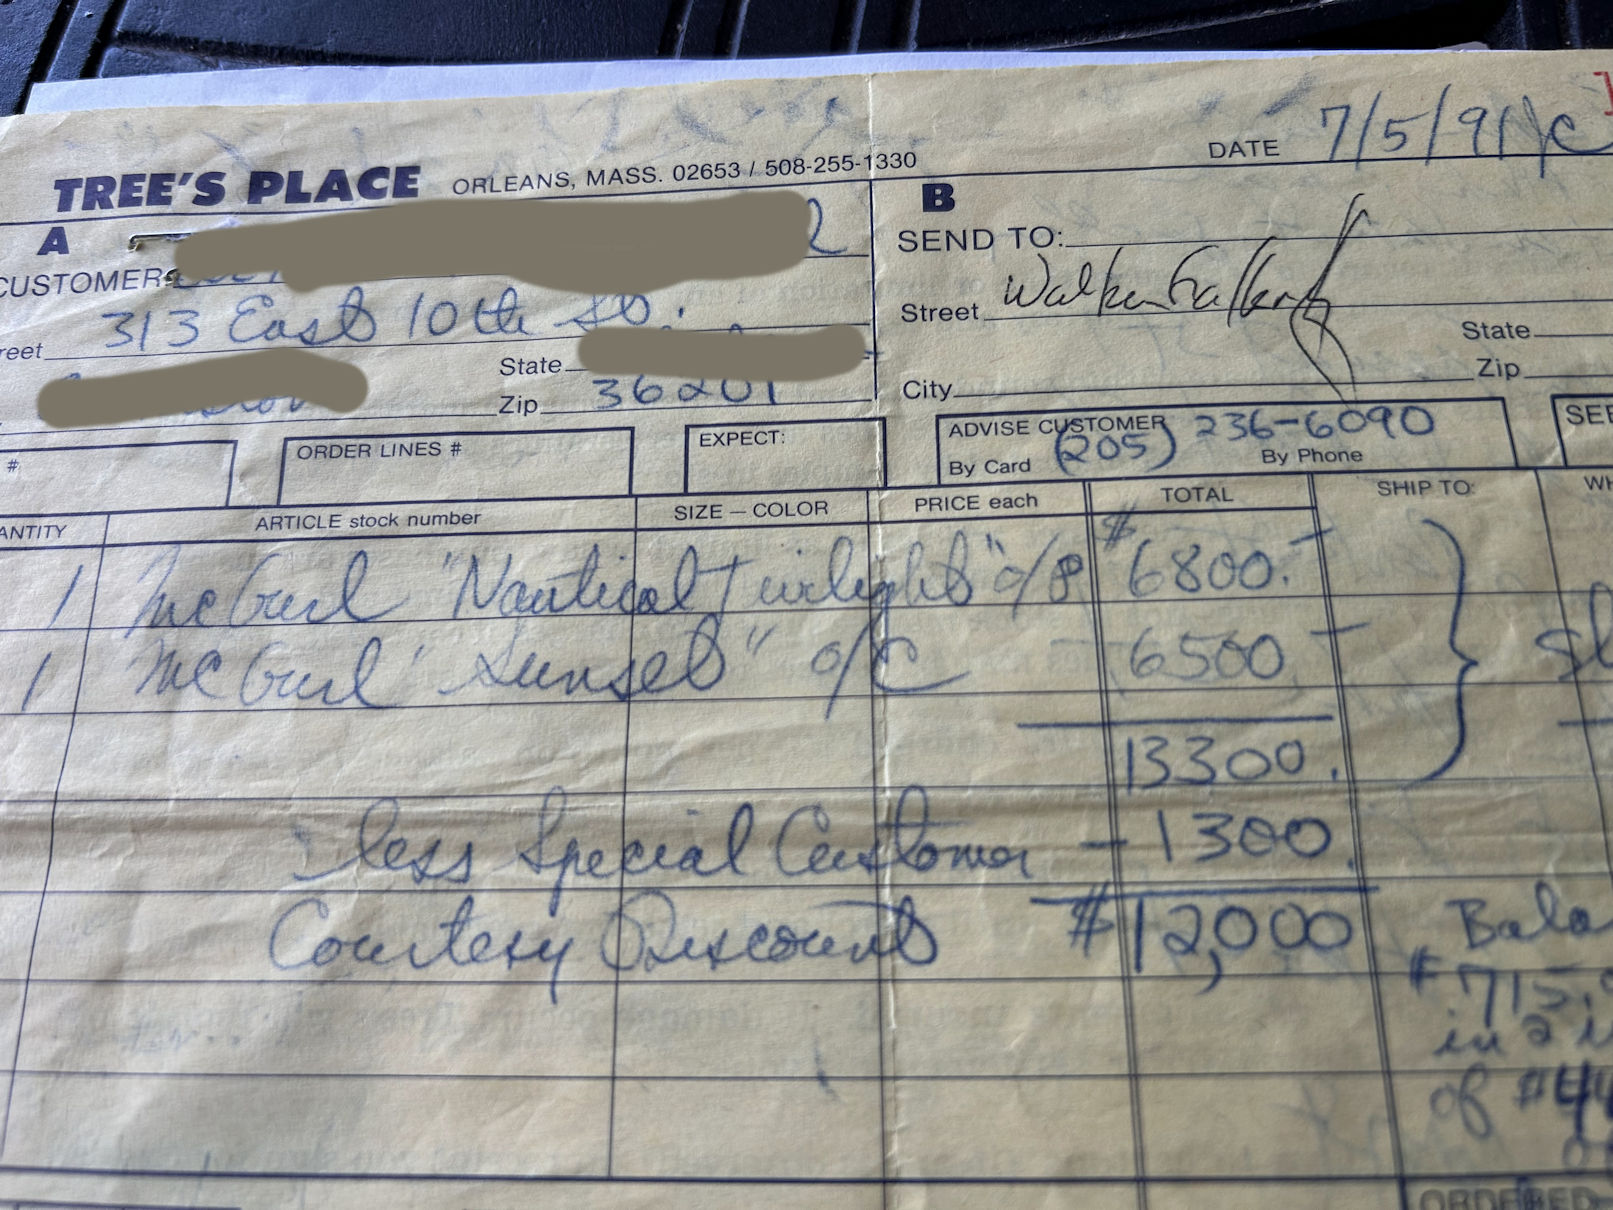 DATE 7/5/91
TREE'S PLACE ORLEANS, MASS. 02653 / 508-255-1330
A
CUSTOMER
313 East 10th St.
reet
State
Zip 36201
B
SEND TO:
Street Walker Gallery
State
City Zip
#
ORDER LINES #
EXPECT:
ADVISE CUSTOMER (205) 236-6090
By Card By Phone
SEE
ANTITY ARTICLE stock number SIZE – COLOR PRICE each TOTAL SHIP TO: WH
1 McGurl "Nautical Twilight" o/P $6800.–
1 McGurl "Sunset" o/C 6500.–
13300.
less Special Customer – 1300.
Courtesy Discount $12,000
Bala
$715,
in 2 i
of $44
ORDERED